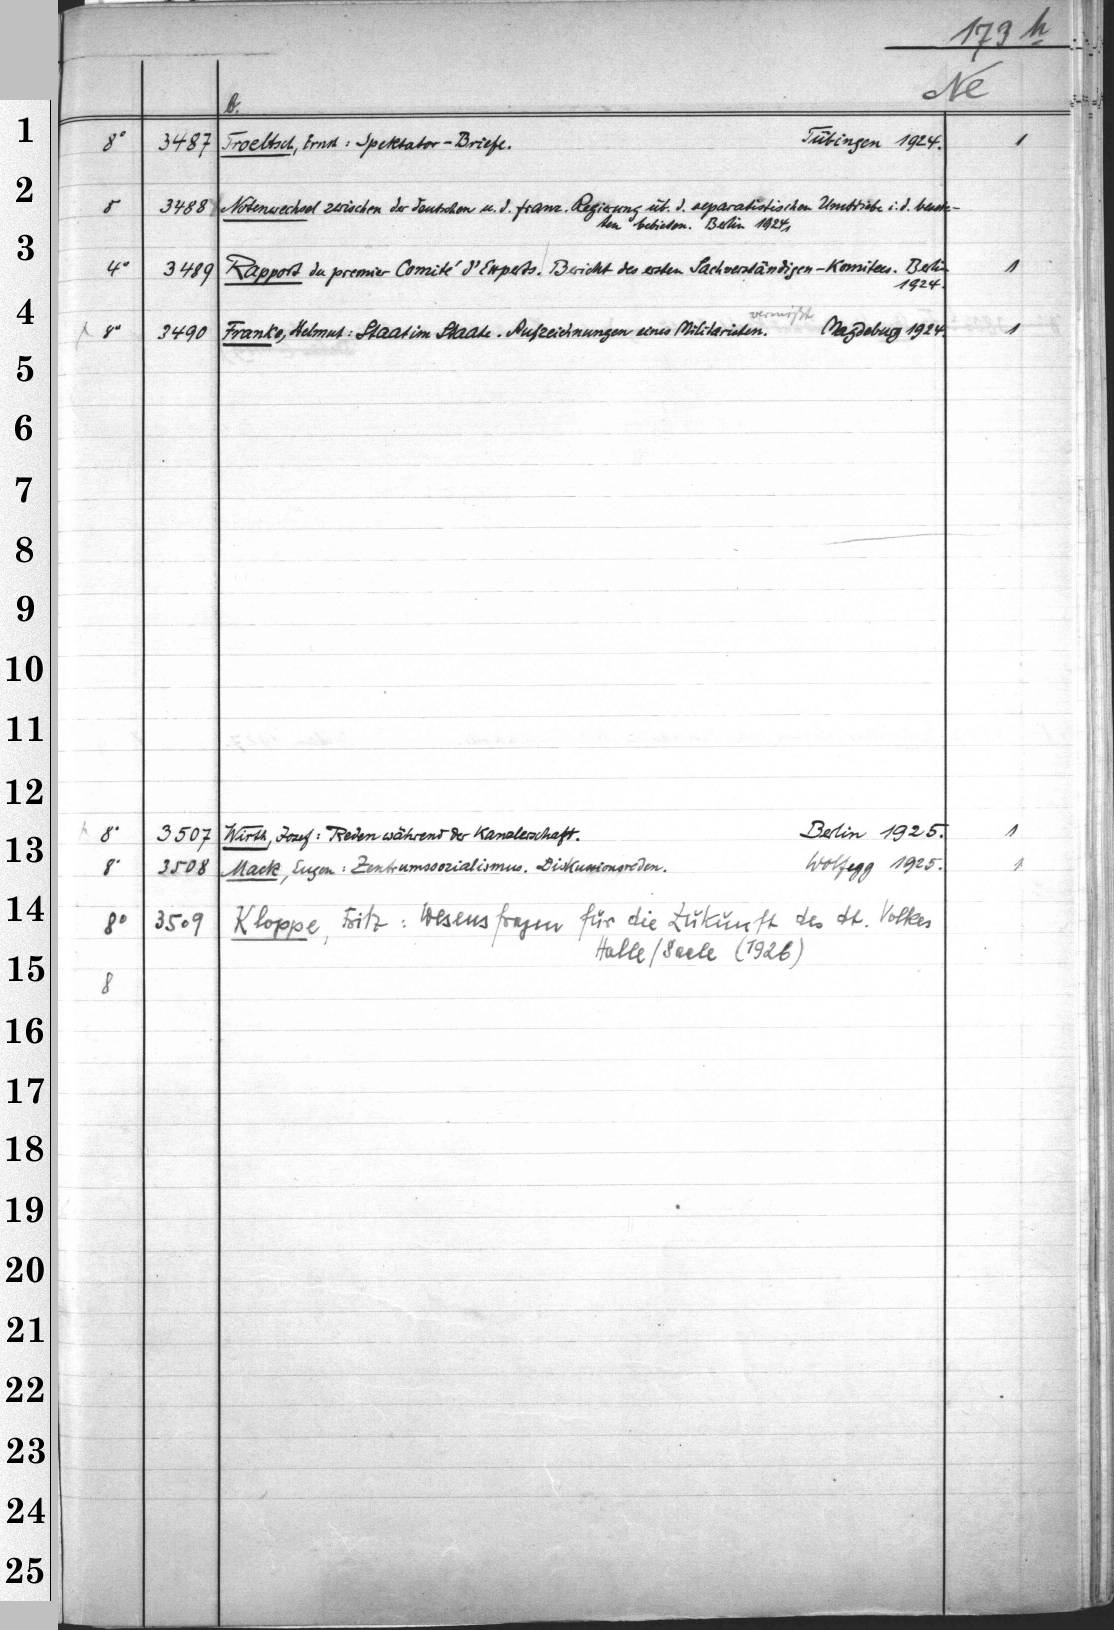 173 h
Ne
b.
1
8° 3487 Troeltsch, Ernst: Spektator-Briefe. Tübingen 1924. 1
2
8 3488 Notenwechsel zwischen der deutschen u. d. franz. Regierung üb. d. separatistischen Umtriebe i. d. besetz-
ten Gebieten. Berlin 1924.
3
4° 3489 Rapport du premier Comité d'Experts. Bericht des ersten Sachverständigen-Komitees. Berlin 1
1924.
4
vermißt
8° 3490 Franke, Helmut: Staat im Staate. Aufzeichnungen eines Militaristen. Magdeburg 1924. 1
5
6
7
8
9
10
11
12
8° 3507 Wirth, Josef: Reden während der Kanzlerschaft. Berlin 1925. 1
13
8° 3508 Mack, Eugen: Zentrumssozialismus. Diskussionsreden. Wolfegg 1925. 1
14
8° 3509 Kloppe, Fritz: Wesensfragen für die Zukunft des dt. Volkes
Halle/Saale (1926)
15
8
16
17
18
19
20
21
22
23
24
25